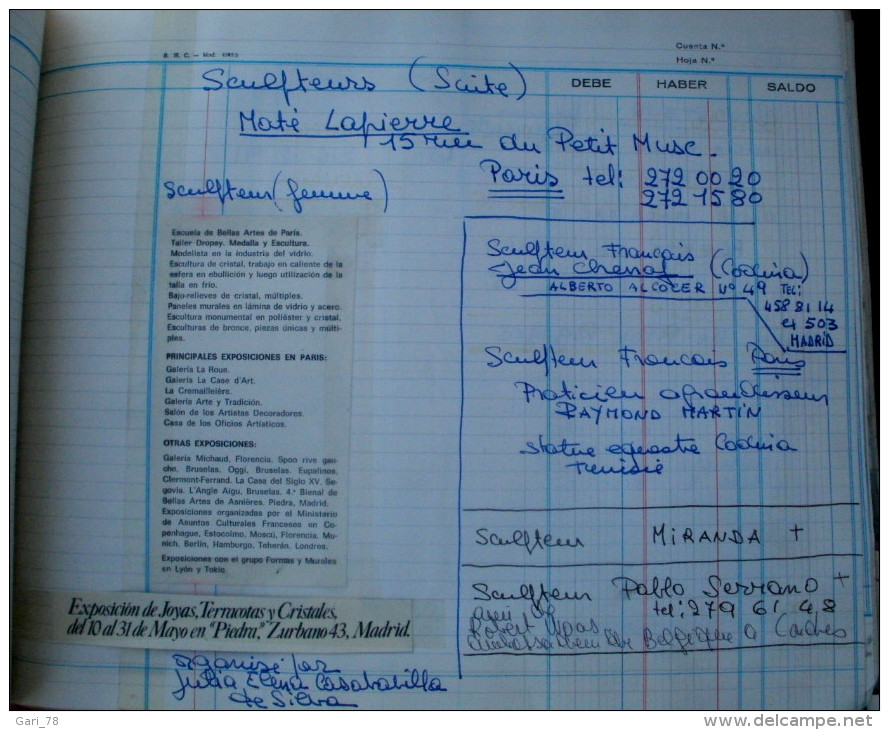 Cuenta N.°
Hoja N.°
DEBE HABER SALDO
Sculpteurs (Suite)
Maté Lapierre
15 rue du Petit Musc.
Paris tel: 272 00 20
272 15 80
Sculpteur (femme)
Escuela de Bellas Artes de París.
Taller Dropsy. Medalla y Escultura.
Modelista en la industria del vidrio.
Escultura de cristal, trabajo en caliente de la
esfera en ebullición y luego utilización de la
talla en frío.
Bajo-relieves de cristal, múltiples.
Paneles murales en lámina de vidrio y acero.
Escultura monumental en poliéster y cristal.
Esculturas de bronce, piezas únicas y múlti-
ples.
PRINCIPALES EXPOSICIONES EN PARIS:
Galería La Roue.
Galería La Case d'Art.
La Cremaillèire.
Galería Arte y Tradición.
Salón de los Artistas Decoradores.
Casa de los Oficios Artísticos.
OTRAS EXPOSICIONES:
Galería Michaud, Florencia. Spon rive gau-
che, Bruselas. Oggi, Bruselas. Eupalinos,
Clermont-Ferrand. La Casa del Siglo XV, Se-
govia. L'Angle Aigu, Bruselas. 4.ª Bienal de
Bellas Artes de Asnières. Piedra, Madrid.
Exposiciones organizadas por el Ministerio
de Asuntos Culturales Franceses en Co-
penhague, Estocolmo, Moscú, Florencia, Mu-
nich, Berlín, Hamburgo, Teherán, Londres.
Exposiciones con el grupo Formas y Murales
en Lyón y Tokio.
Exposición de Joyas, Terracotas y Cristales.
del 10 al 31 de Mayo en "Piedra," Zurbano 43, Madrid.
organisé par
Julia Elena
de Silva
Sculpteur Français
Jean (Codina)
ALBERTO ALCOCER Nº 49 TEL:
458 81 14
et 503
MADRID
Sculpteur Francais Paris
Praticien agrandisseur
RAYMOND MARTIN
Statue equestre Codina
Tunisie
Sculpteur MIRANDA +
Sculpteur Pablo Serrano +
ami de tel: 279 61 48
Robert
Belgique a
Gari_78
www.delcampe.net